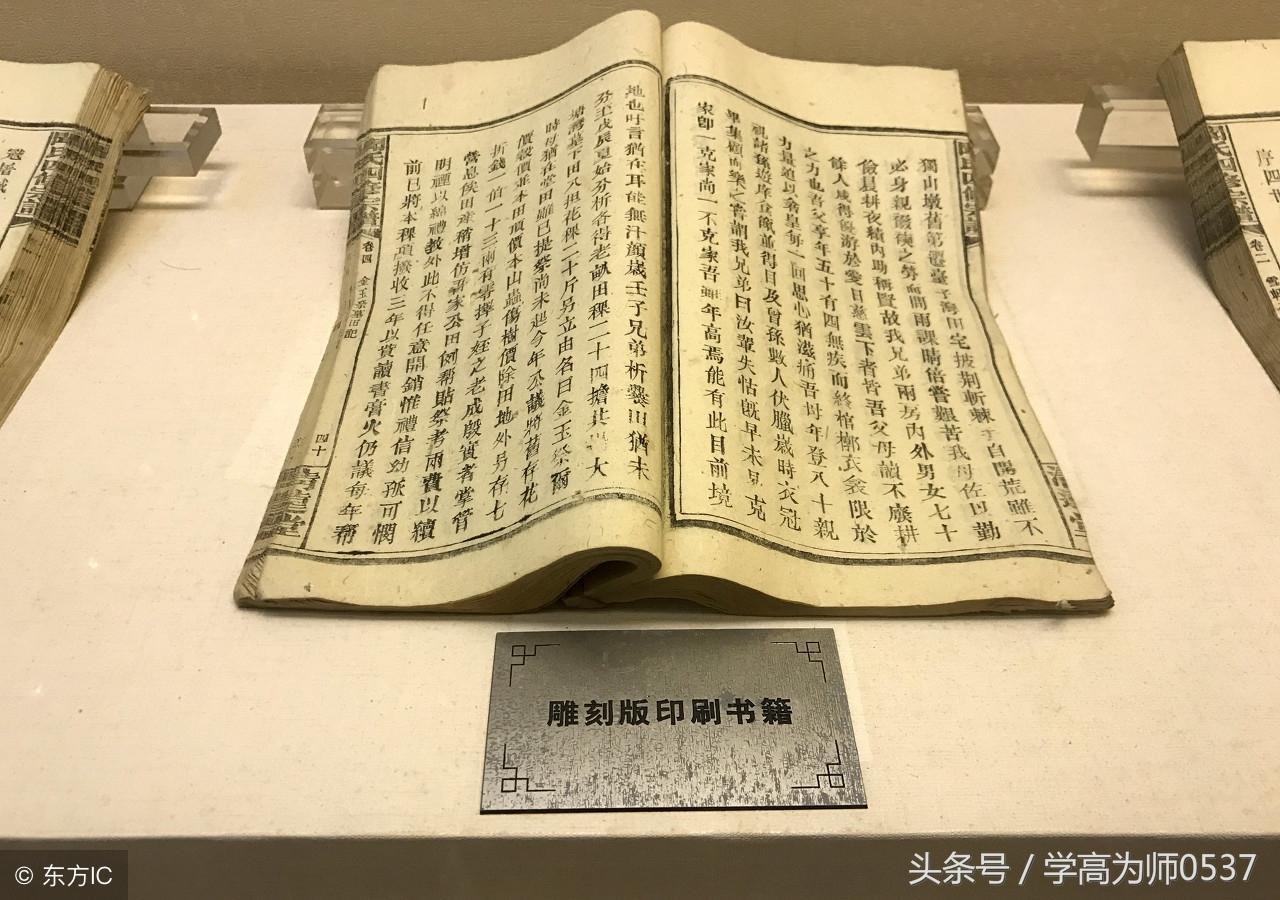 獨山墩舊第澹臺子灣田宅披荆斬棘于自陽荒雖不
必身親之勞而間雨課晴倍嘗艱苦我母佐以勤
儉晨耕夜績內助稱賢故我兄弟兩房內外男女七十
餘人咸得優游於愛日慈雲下者皆吾父母讀不廢耕
之力也吾父享年五十有四無疾而終棺槨衣衾限於
力量追以翁皇每一回思心猶滋痛吾母年登八十親
視諸孫遊庠食餼並得目及曾孫數人伏臘歲時衣冠
畢集顧而樂之嘗謂我兄弟曰汝輩失怙旣早未見克
家卽一克家尚一不克家吾雖年高焉能有此目前境
地也吁言猶在耳能無汁顏歲壬子兄弟析爨田猶未
分至戊辰夏始分析各得老畝田稞二十四擔共大
塘灣墓下田八担花稞二十斤另立由名曰金玉祭爾
時母猶在堂田雖已提祭尚未起今年公議將舊存花
價穀價並本田頂價本山蟲傷樹價除田地外另存七
折錢一伯一十三兩有零擇子姪之老成殷實者掌管
營息俟田產稍增仿吾家公田例帮貼祭考兩費以續
明禋以綿禮教外此不得任意開銷惟禮信幼孤可憫
前已將本稞項撥收三年以資讀書膏火仍議每年帮
四修宗譜 卷四 四十
卷二
雕刻版印刷书籍
© 东方IC
头条号 / 学高为师0537